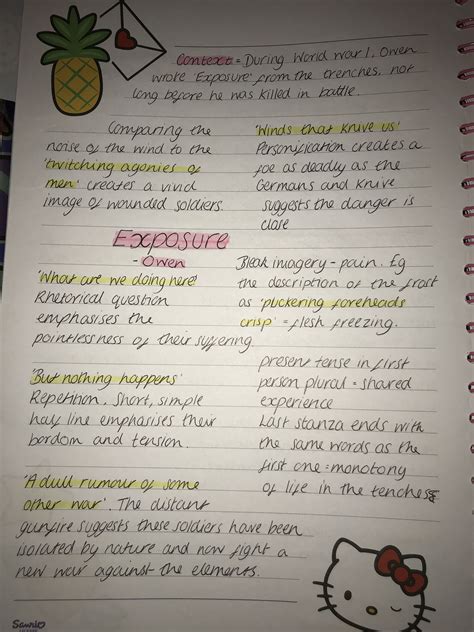 Context = During World War 1, Owen
wrote 'Exposure' from the trenches, not
long before he was killed in battle.
Comparing the
noise of the wind to the
'twitching agonies of
men' creates a vivid
image of wounded soldiers.
'Winds that knive us'
Personification creates a
foe as deadly as the
Germans and knive
suggests the danger is
close
Exposure
- Owen
'What are we doing here?'
Rhetorical question
emphasises the
pointlessness of their suffering.
Bleak imagery - pain. Eg
the description of the frost
as 'puckering foreheads
crisp' = flesh freezing.
'But nothing happens'
Repetition. Short, simple
half line emphasises their
bordom and tension.
present tense in first
person plural = shared
experience
Last stanza ends with
the same words as the
first one = monotony
of life in the tenches
'A dull rumour of some
other war'. The distant
gunfire suggests these soldiers have been
isolated by nature and now fight a
new war against the elements.
Sanrio